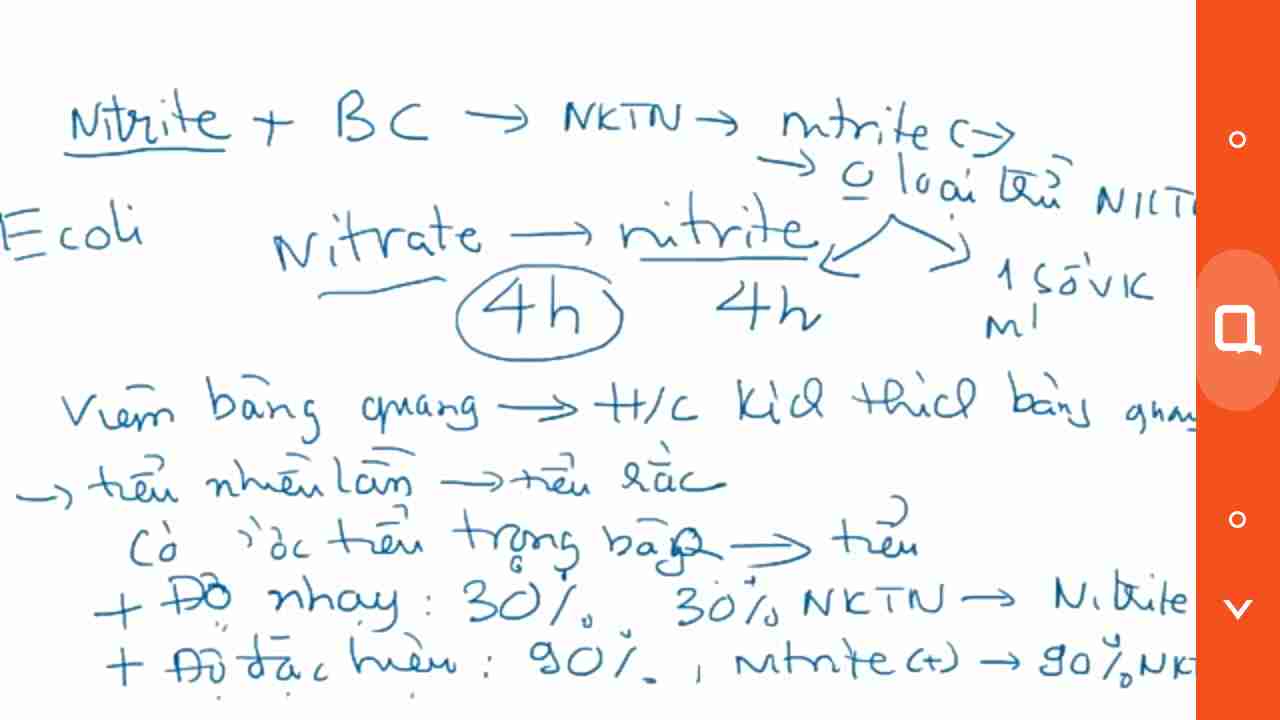 Nitrite + BC → NKTN → nitrite (-)
→ 0 loại trừ NKTN
Ecoli Nitrate → nitrite
4h 4h 1 số VK
Viêm bàng quang → H/C kích thích bàng quang
→ tiểu nhiều lần → tiểu rắc
Có ước tiểu trong bàng → tiểu
+ Độ nhạy : 30% 30% NKTN → Nitrite
+ Độ đặc hiệu : 90% , nitrite (+) → 90% NKT